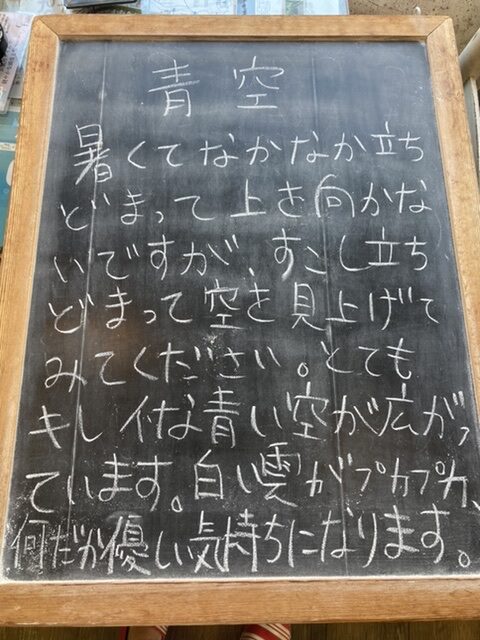 青空
暑くてなかなか立ち
どまって上を向かな
いですが、すこし立ち
どまって空を見上げて
みてください。とても
キレイな青い空が広がっ
ています。白い雲がプカプカ、
何だか優しい気持ちになります。